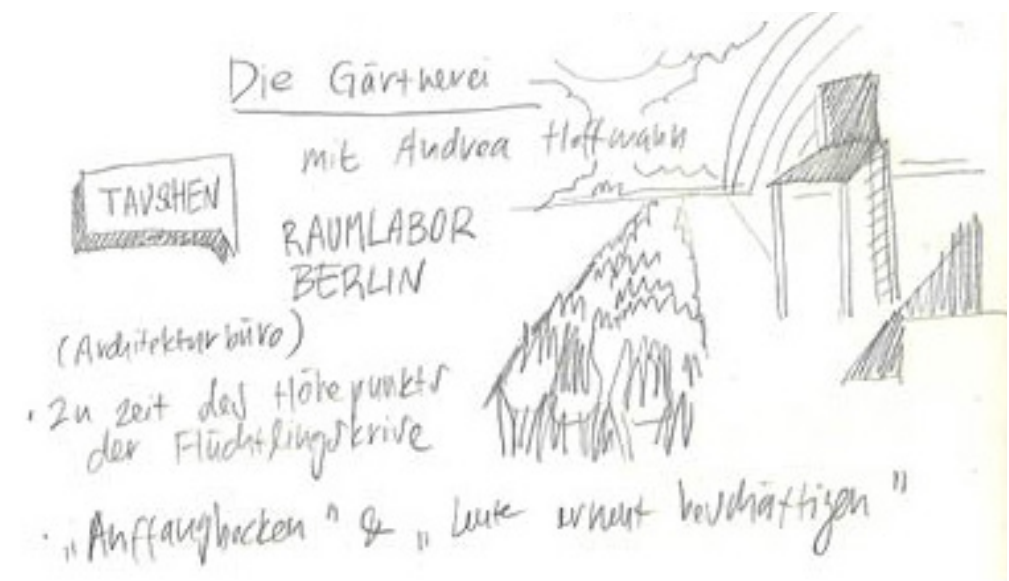 Die Gärtnerei
mit Andrea Hoffmann
TAUSCHEN
RAUMLABOR
BERLIN
(Architekturbüro)
· zu zeit des Höhepunkts
der Flüchtlingskrise
· „Auffangbecken" & „Leute erneut beschäftigen"